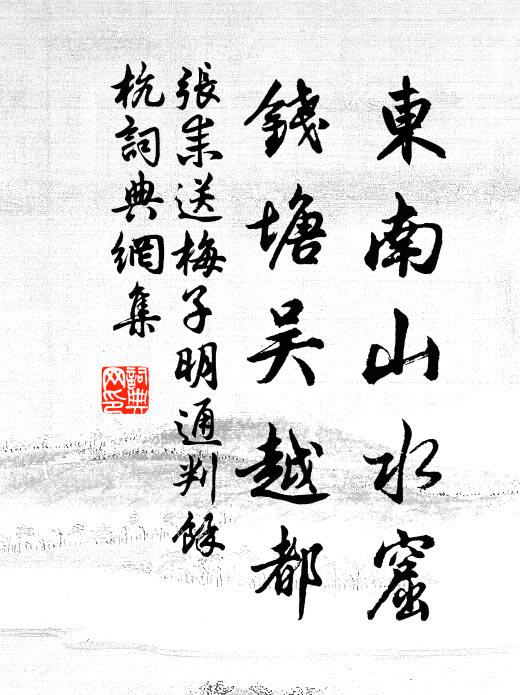 東南山水窟
錢塘吴越都
張耒送梅子明通判餘
杭詞典網集
詞典
网印